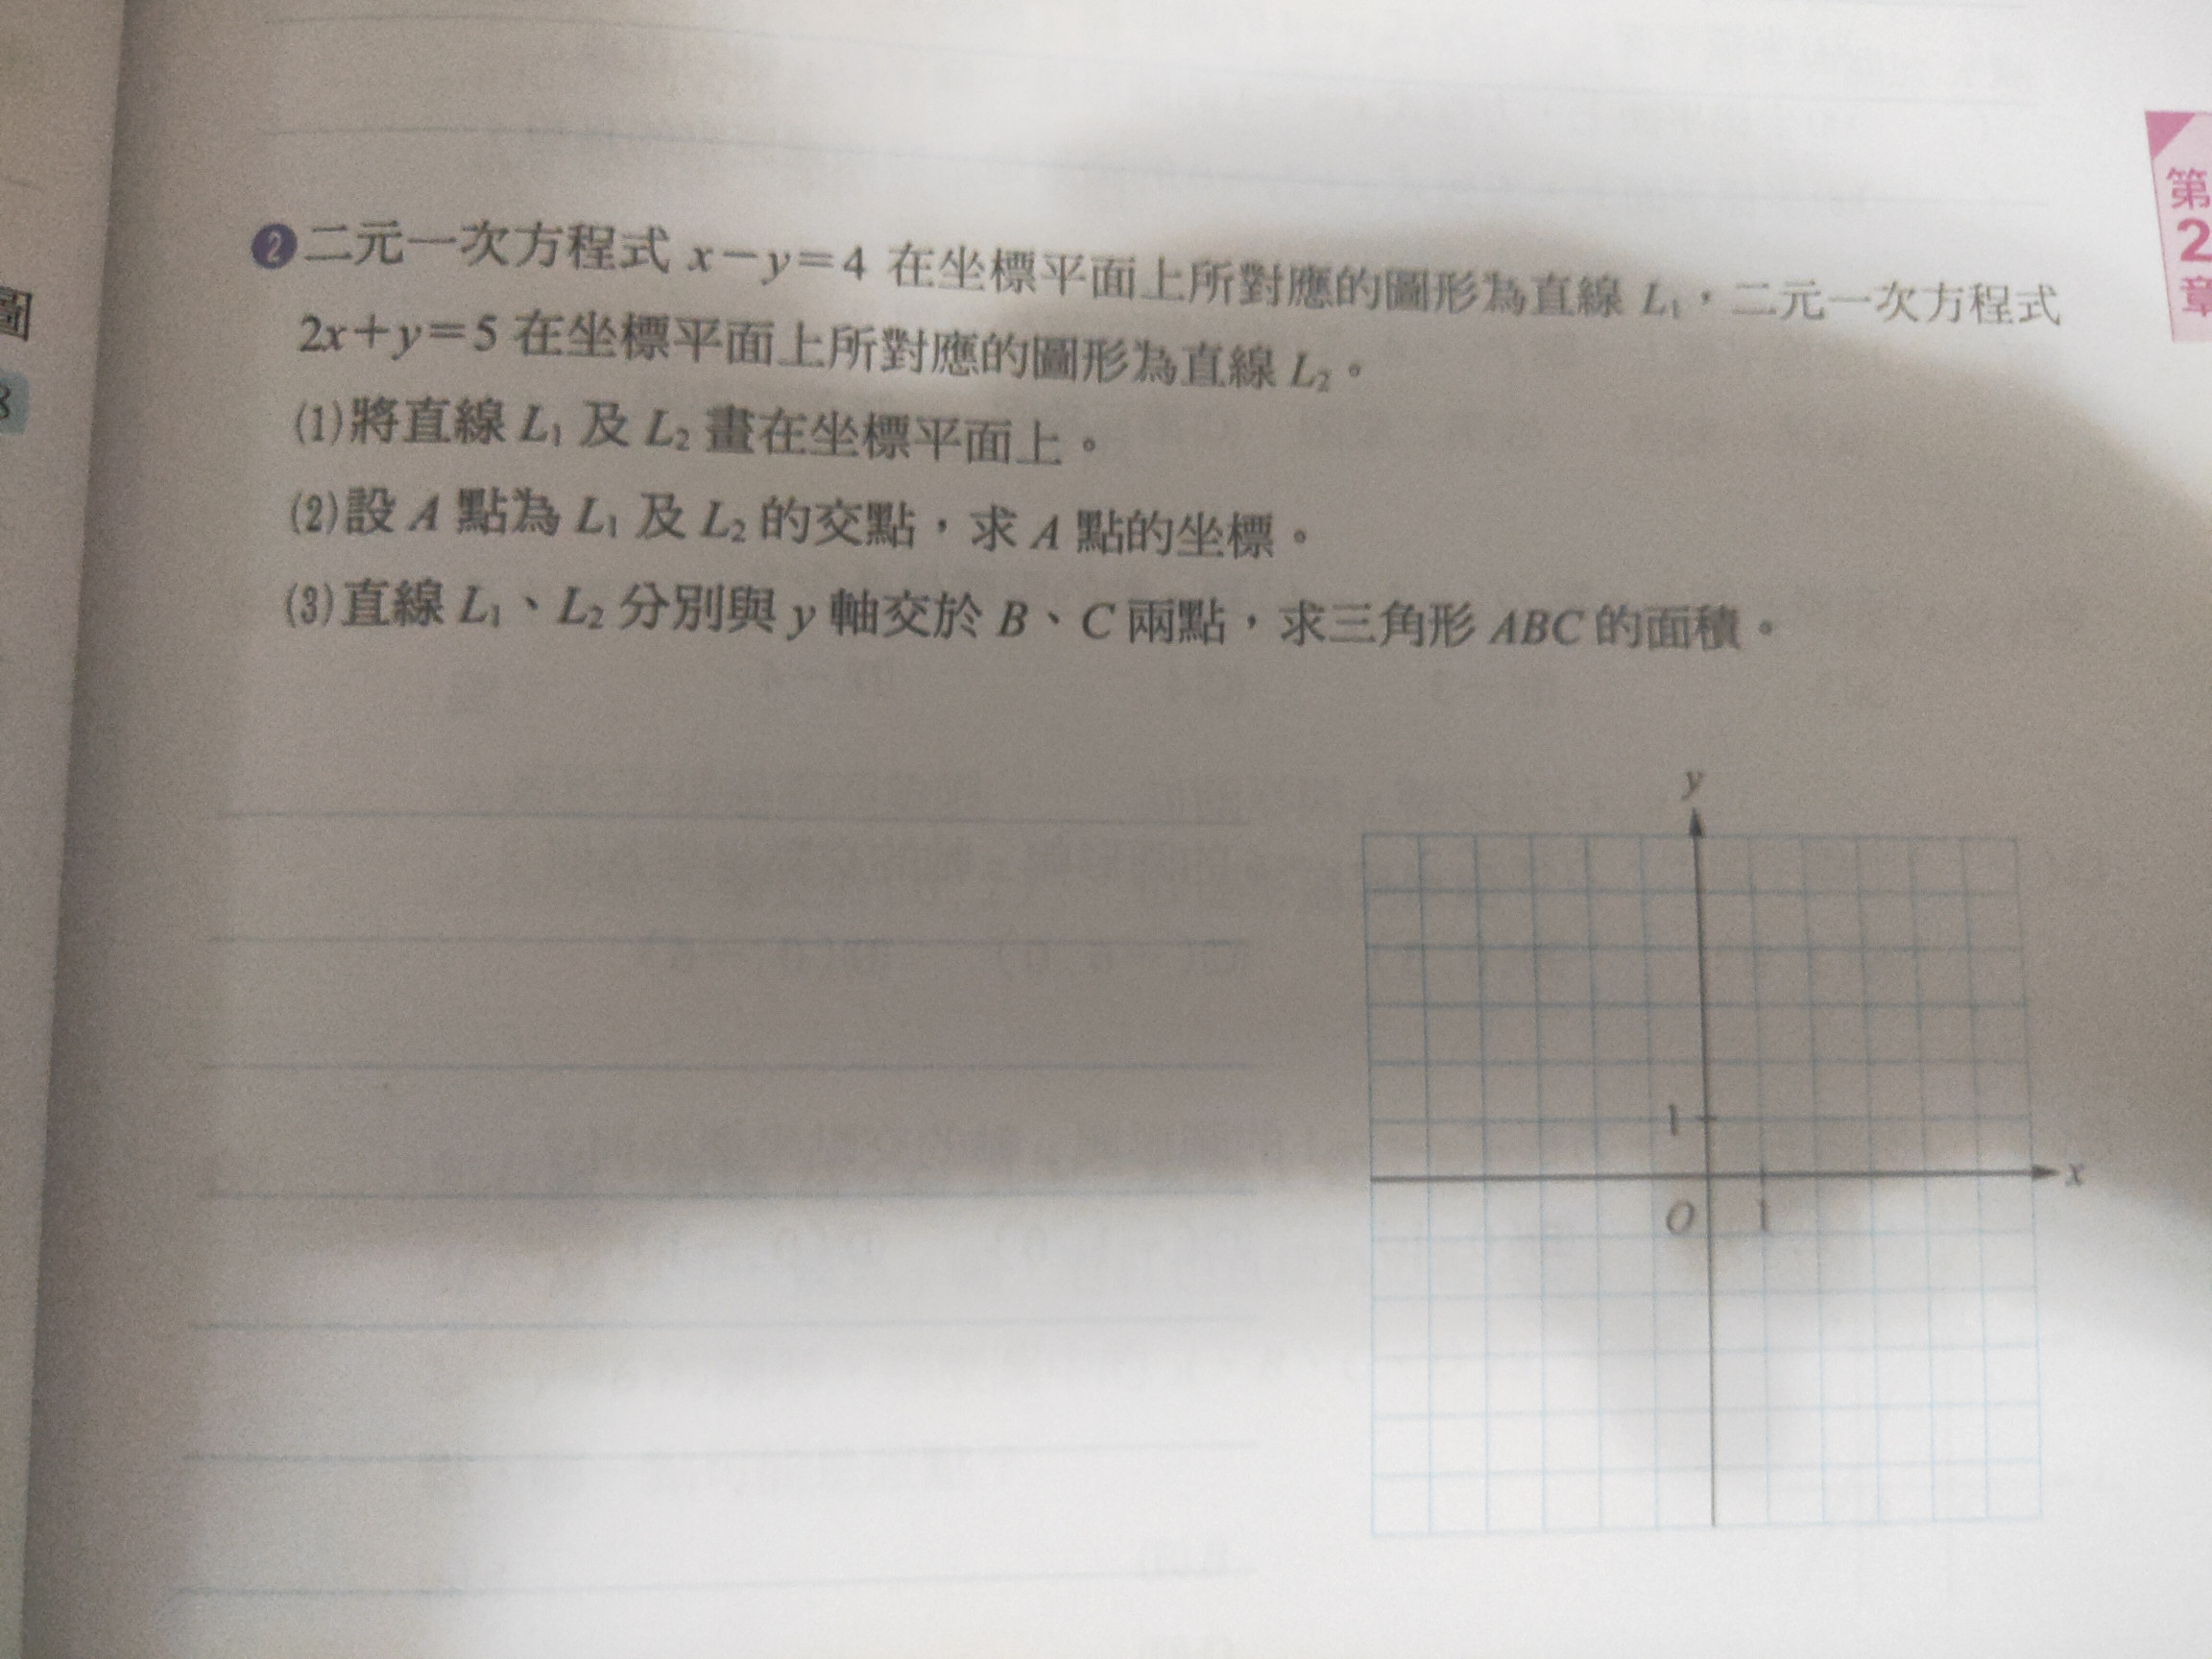 第
2
章
圖
8
❷二元一次方程式 x－y＝4 在坐標平面上所對應的圖形為直線 L₁，二元一次方程式
2x＋y＝5 在坐標平面上所對應的圖形為直線 L₂。
(1)將直線 L₁ 及 L₂ 畫在坐標平面上。
(2)設 A 點為 L₁ 及 L₂ 的交點，求 A 點的坐標。
(3)直線 L₁、L₂ 分別與 y 軸交於 B、C 兩點，求三角形 ABC 的面積。
y
1
x
O 1